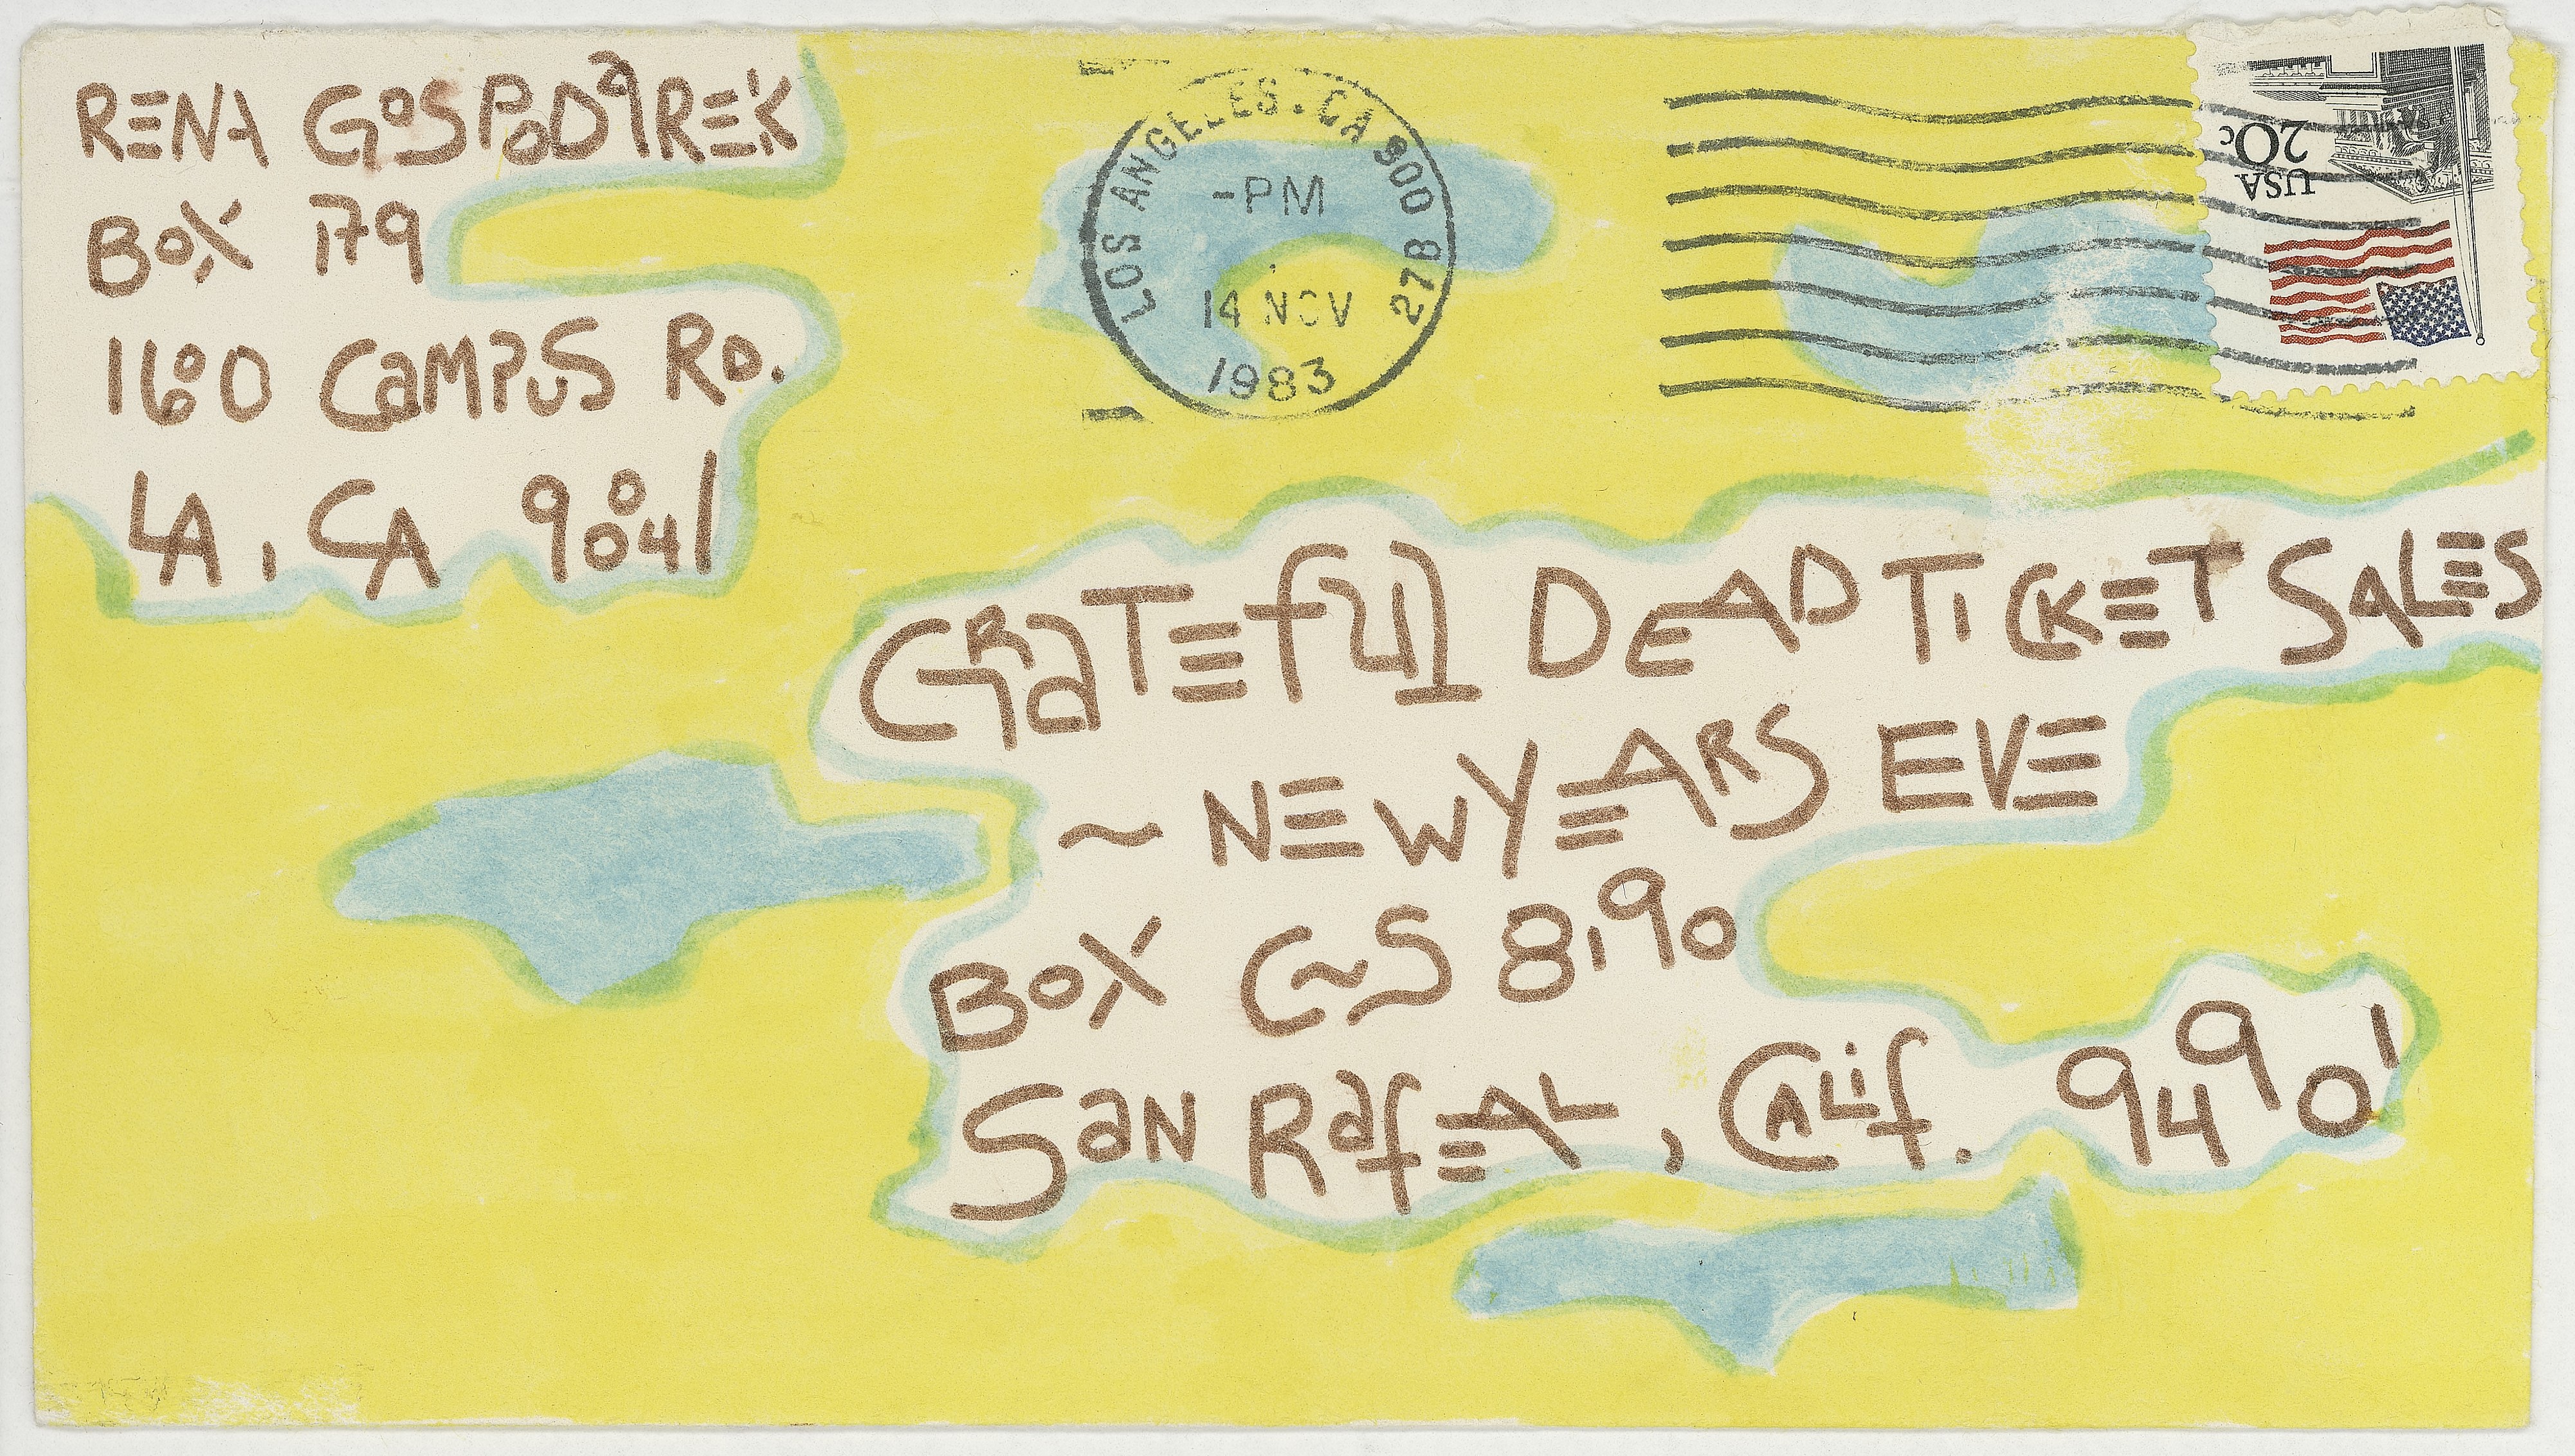 RENA GOSPODAREK
BOX 179
1600 CAMPUS RD.
LA, CA 90041
LOS ANGELES. CA 900 27B
-PM
14 NOV
1983
USA
20c
GRaTEful DEAD TiCKET SALES
~ NEW YEARS EVE
BOX C~S 8190
SaN RafEAL, CALif. 94901